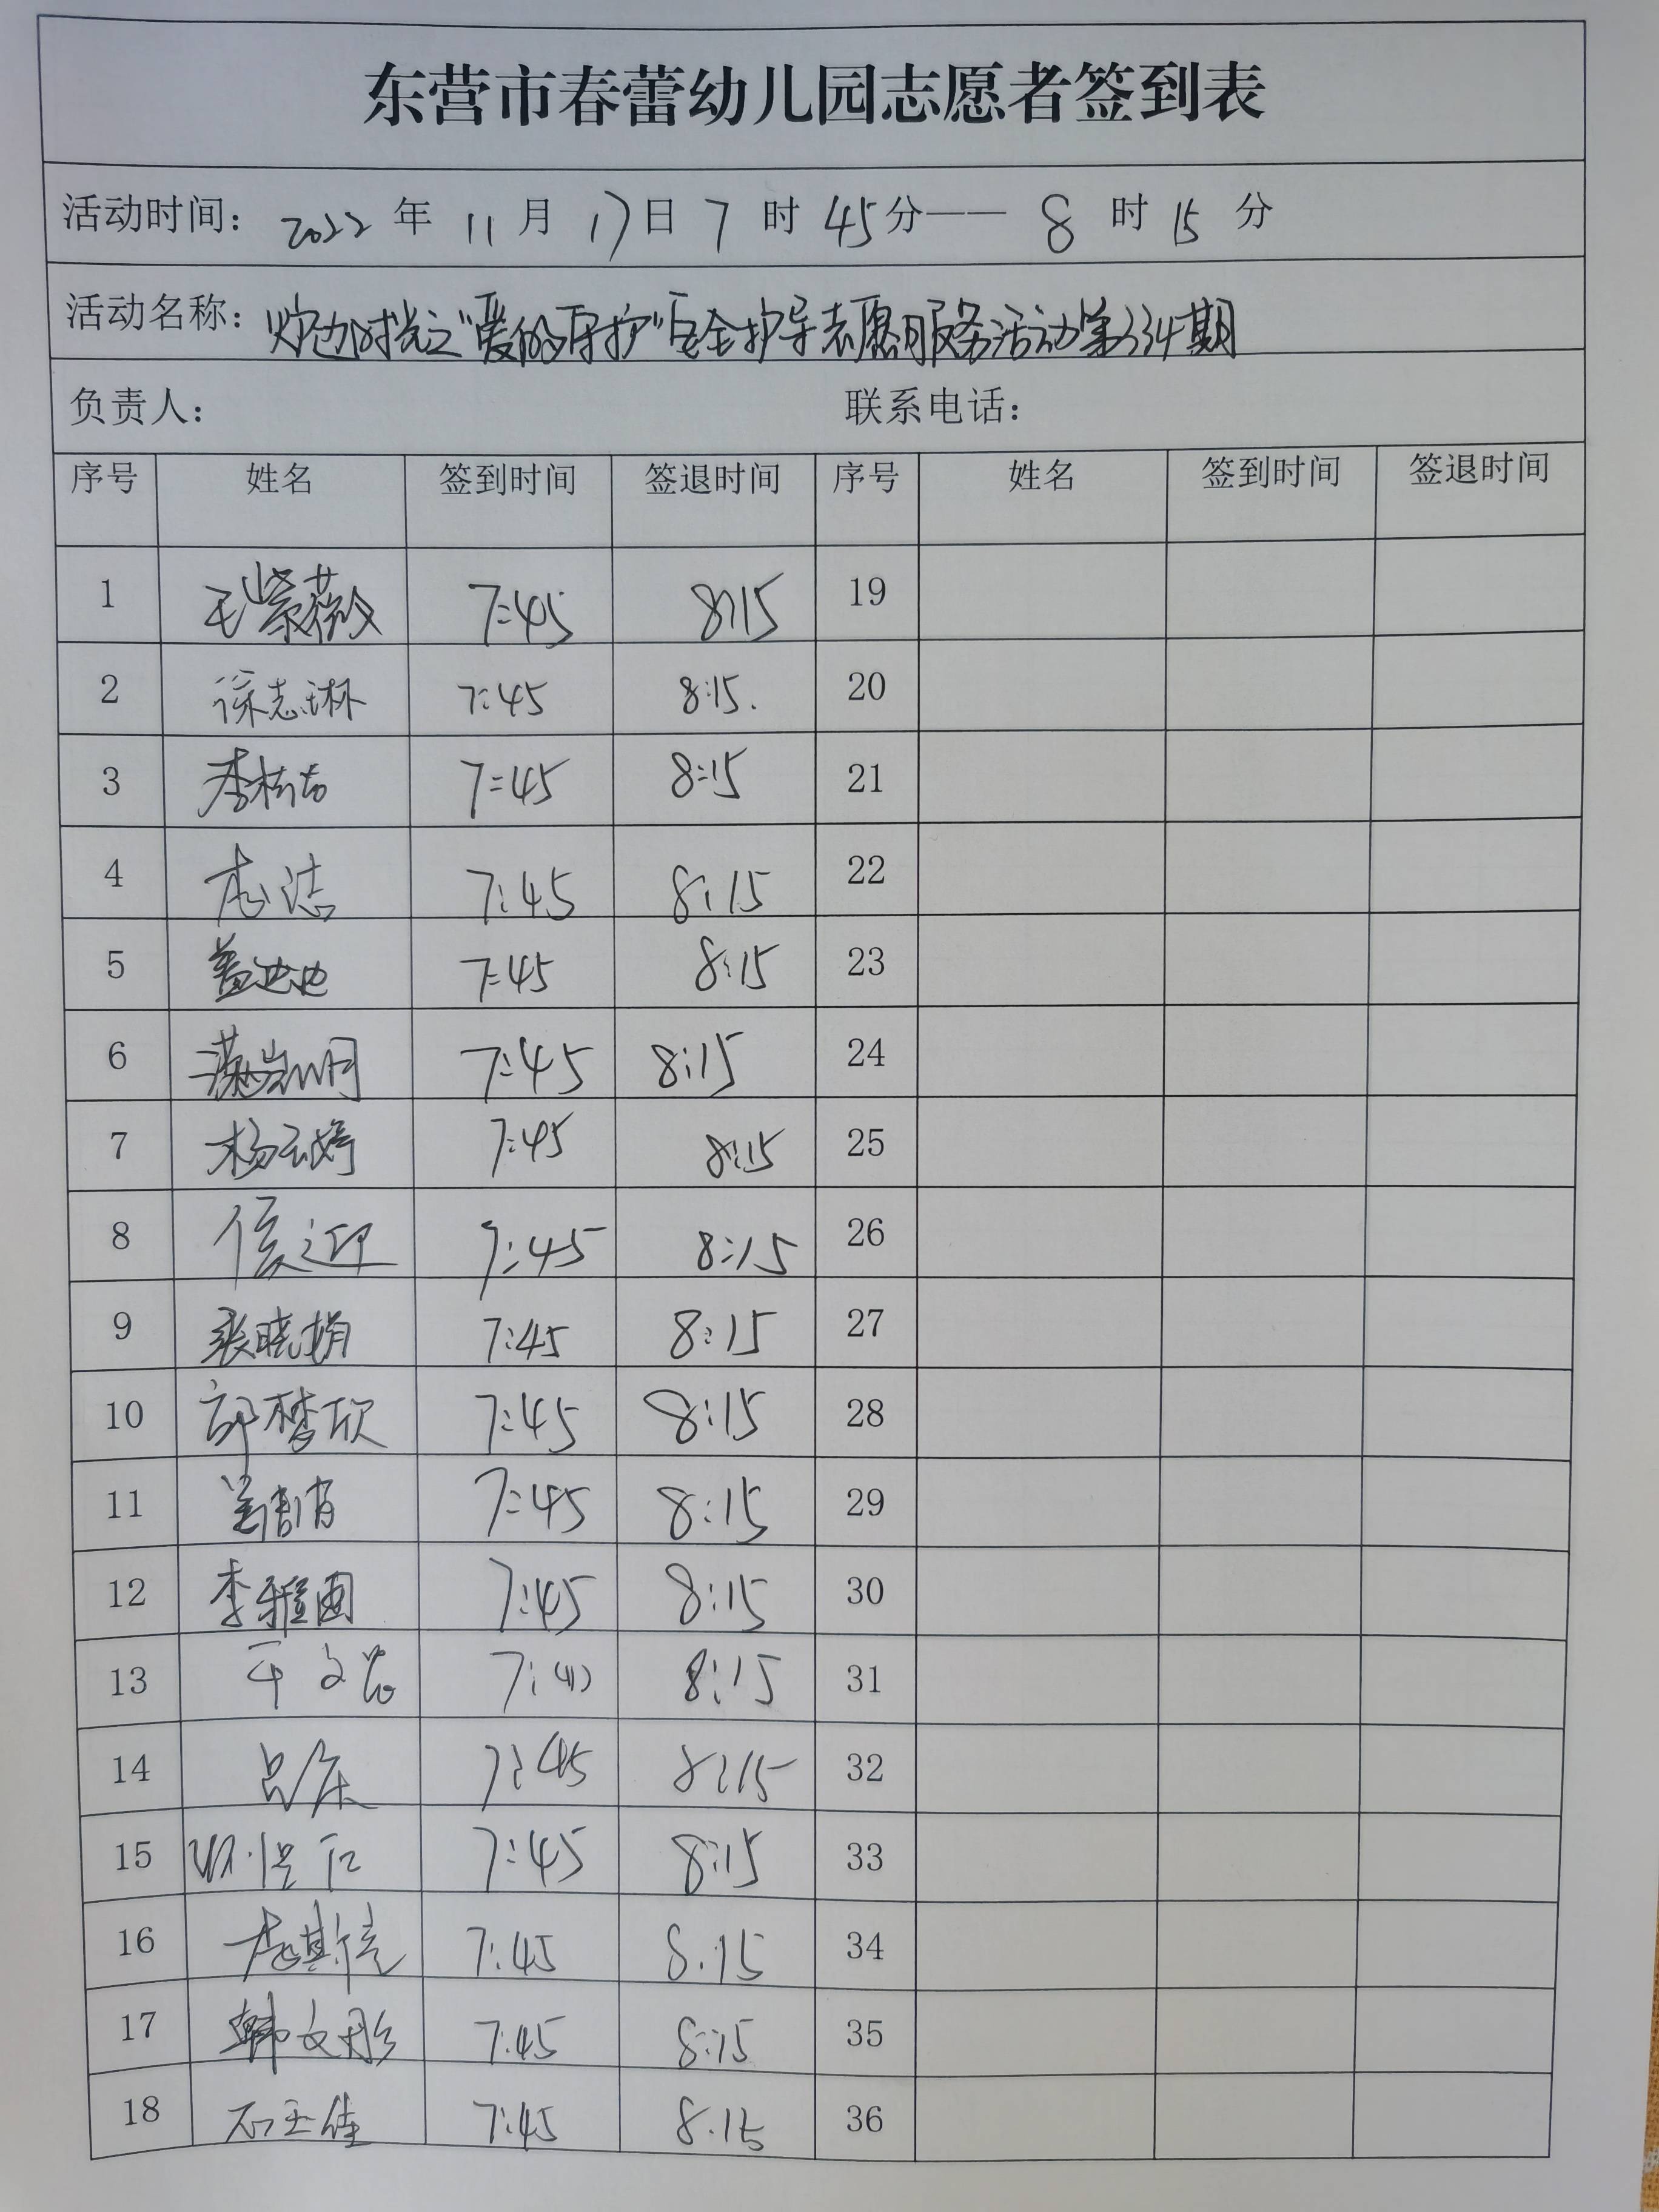 东营市春蕾幼儿园志愿者签到表
活动时间：2022年11月17日7时45分——8时15分
活动名称："爱的守护"安全护导志愿服务活动第334期
负责人： 联系电话：
序号 姓名 签到时间 签退时间 序号 姓名 签到时间 签退时间
1 毛紫薇 7:45 8:15 19
2 徐志琳 7:45 8:15. 20
3 李 7:45 8:15 21
4 7:45 8:15 22
5 盖迪迪 7:45 8:15 23
6 7:45 8:15 24
7 杨云婷 7:45 8:15 25
8 侯迎 7:45 8:15 26
9 裴晓娟 7:45 8:15 27
10 郭梦欣 7:45 8:15 28
11 7:45 8:15 29
12 李雅画 7:45 8:15 30
13 8:15 31
14 吕庆 7:45 8:15 32
15 7:45 8:15 33
16 7:45 8:15 34
17 韩文彤 7:45 8:15 35
18 石玉佳 7:45 8:15 36